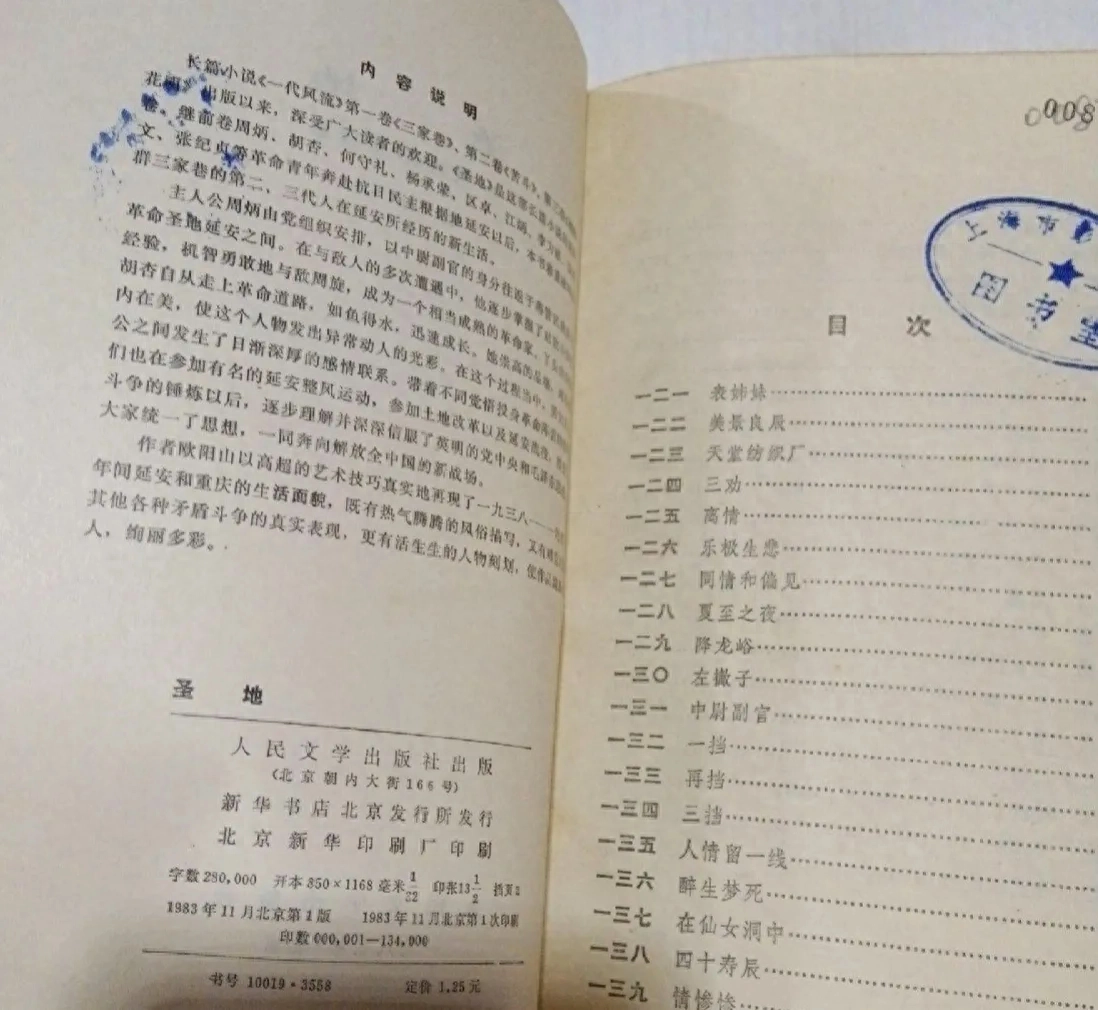 内容说明
长篇小说《一代风流》第一卷《三家巷》、第二卷《苦斗》、
出版以来，深受广大读者的欢迎。《圣地》是这部长篇小说的
继前卷周炳、胡杏、何守礼、杨承荣、区卓、江炳、李为淑、
文、张纪贞等革命青年奔赴抗日民主根据地延安以后，本书着重
群三家巷的第二、三代人在延安所经历的新生活。
主人公周炳由党组织安排，以中尉副官的身分往返于
革命圣地延安之间。在与敌人的多次遭遇中，他逐步掌握了
经验，机智勇敢地与敌周旋，成为一个相当成熟的革命家。
胡杏自从走上革命道路，如鱼得水，迅速成长。她崇高的品德、
内在美，使这个人物发出异常动人的光彩。在这个过程当中，
公之间发生了日渐深厚的感情联系。带着不同觉悟投身革命
们也在参加有名的延安整风运动，参加土地改革以及延安
斗争的锤炼以后，逐步理解并深深信服了英明的党中央和毛泽
大家统一了思想，一同奔向解放全中国的新战场。
作者欧阳山以高超的艺术技巧真实地再现了一九三八——
年间延安和重庆的生活面貌，既有热气腾腾的风俗描写，又有
其他各种矛盾斗争的真实表现，更有活生生的人物刻划，使作品
人，绚丽多彩。
圣 地
人民文学出版社出版
（北京朝内大街166号）
新华书店北京发行所发行
北京新华印刷厂印刷
字数 280,000 开本 850×1168 毫米 1/32 印张 13 1/2 插页 2
1983年11月北京第1版 1983年11月北京第1次印刷
印数 000,001—134,000
书号 10019·3558 定价 1.25 元
008
上海市
图书室
目 次
一二一 表姊妹
一二二 美景良辰
一二三 天堂纺织厂
一二四 三劝
一二五 离情
一二六 乐极生悲
一二七 同情和偏见
一二八 夏至之夜
一二九 降龙峪
一三〇 左撇子
一三一 中尉副官
一三二 一挡
一三三 再挡
一三四 三挡
一三五 人情留一线
一三六 醉生梦死
一三七 在仙女洞中
一三八 四十寿辰
一三九 情惨惨